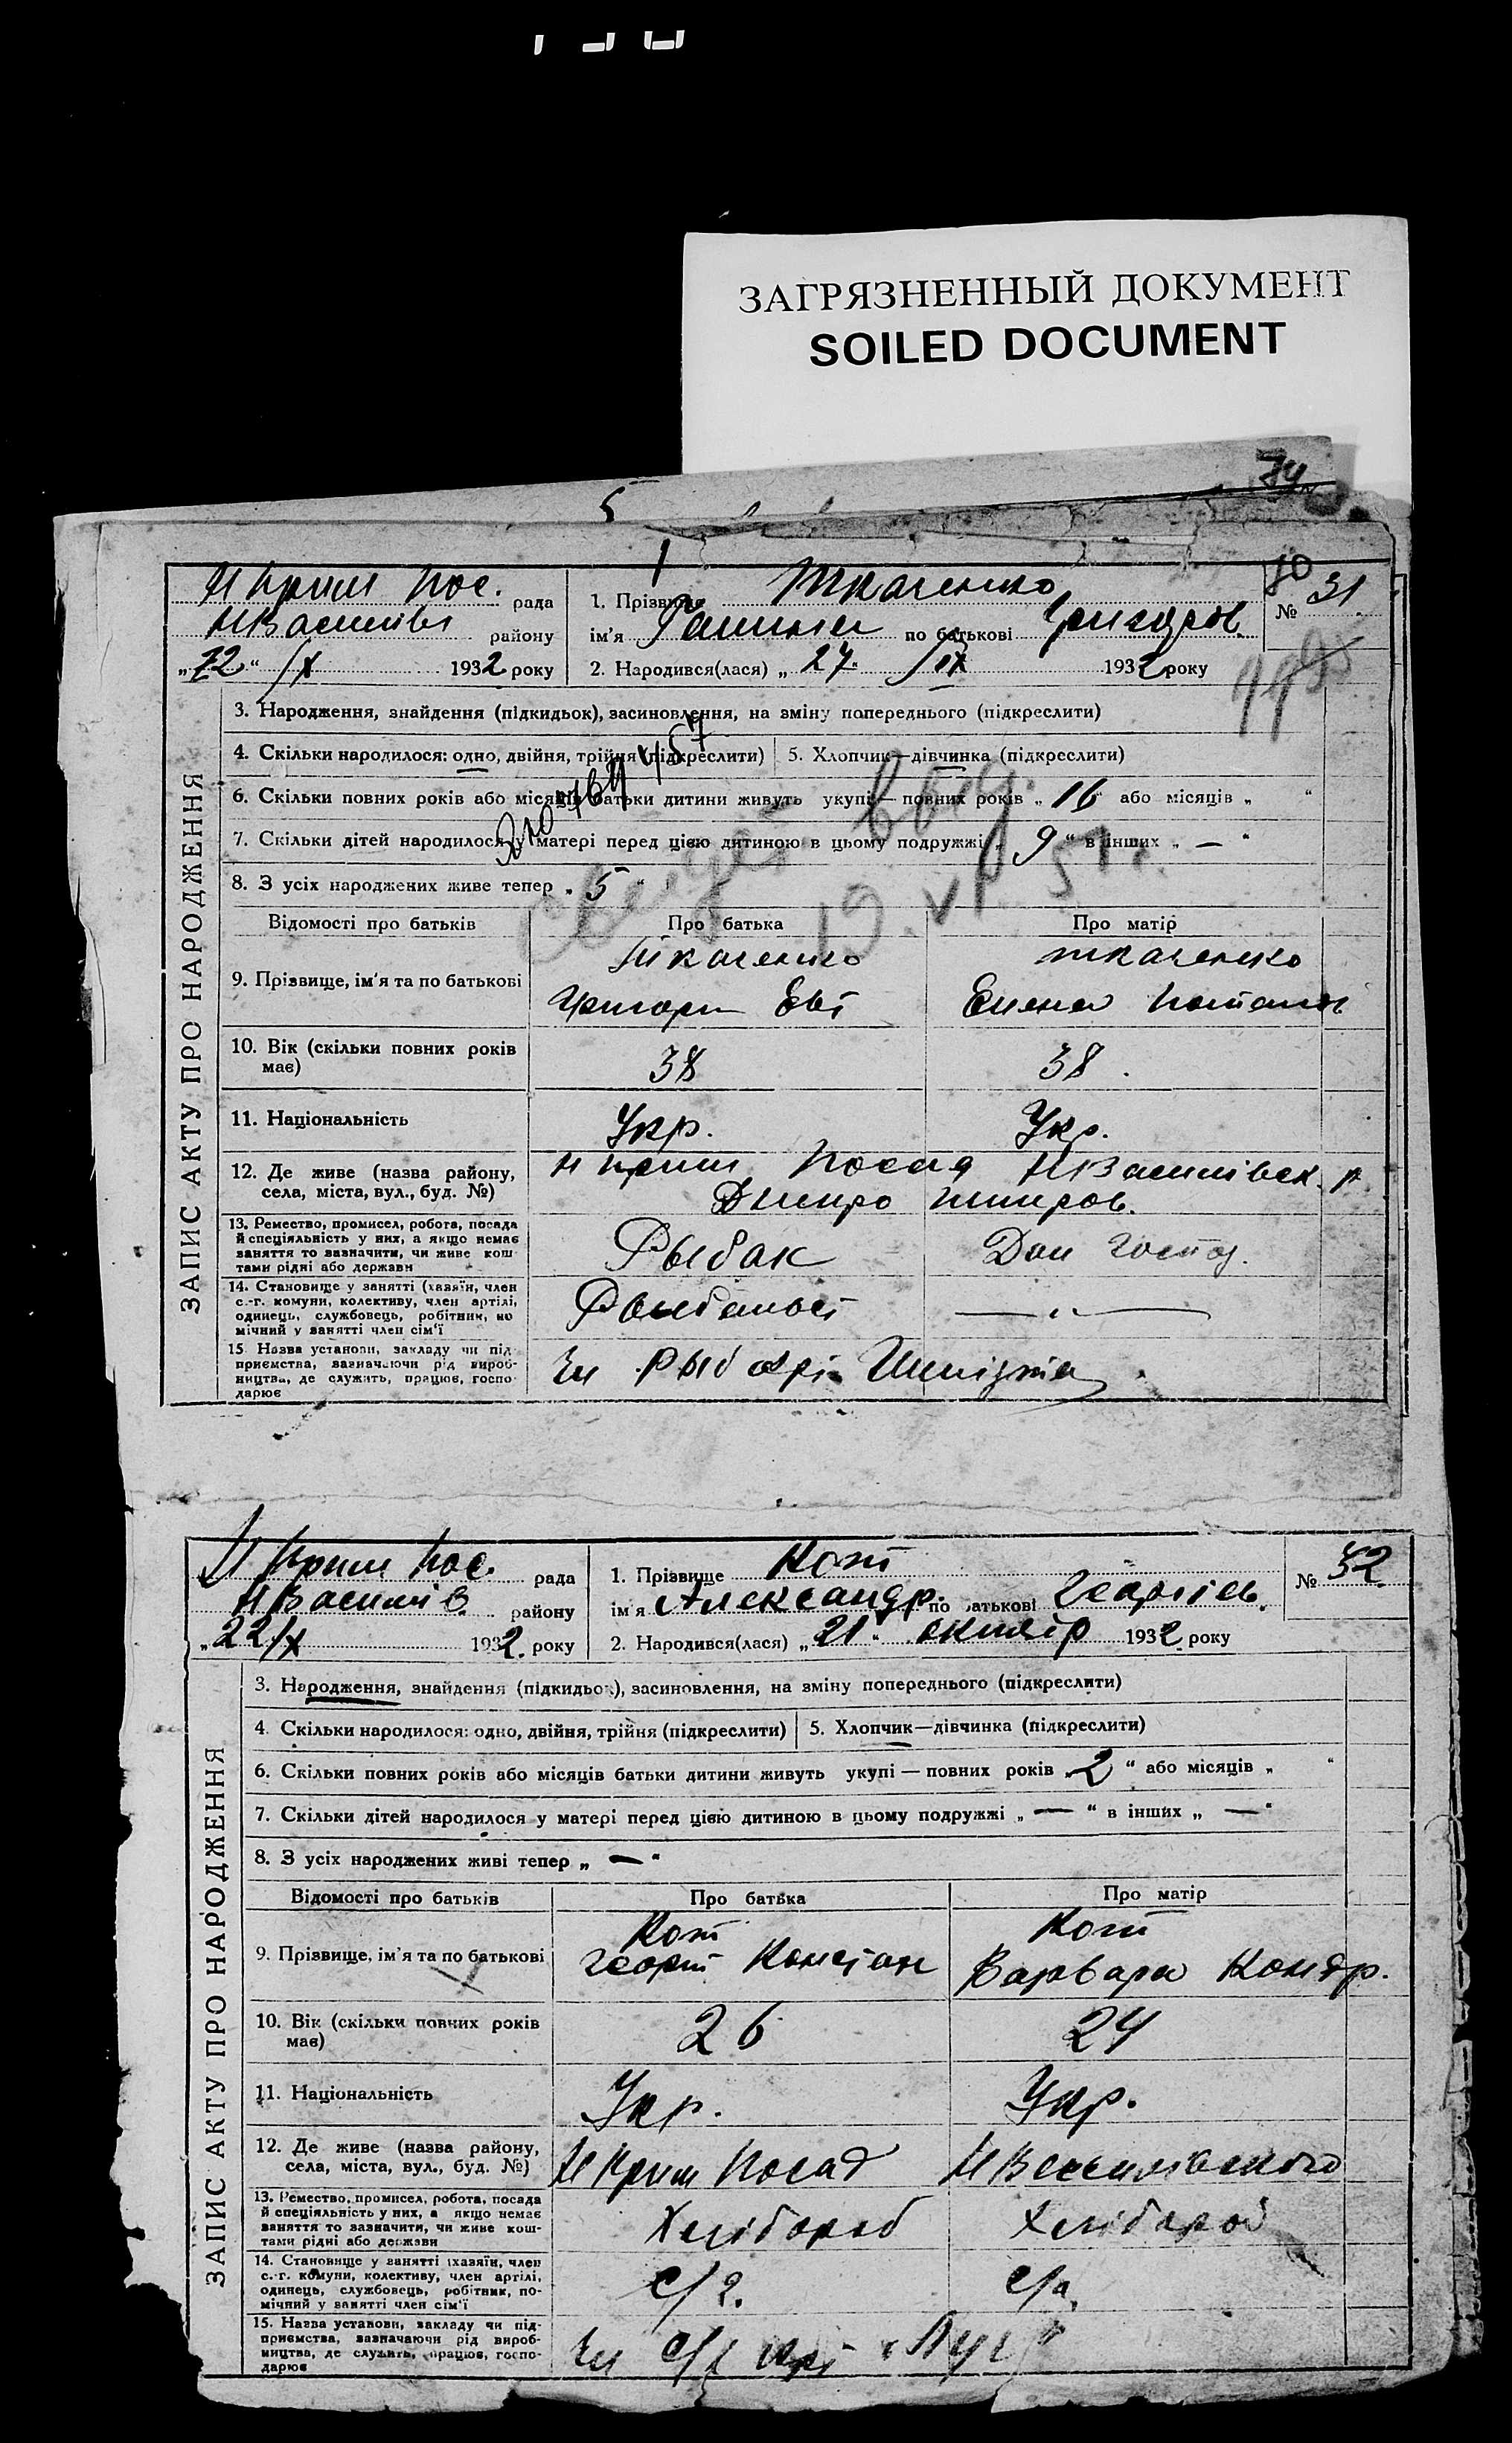 ЗАГРЯЗНЕННЫЙ ДОКУМЕНТ
SOILED DOCUMENT
5
1
ЗАПИС АКТУ ПРО НАРОДЖЕННЯ
рада
району
"22" /X 1932 року
1. Прізвище Ткаченко
ім'я по батькові Григоров.
2. Народився(лася) „27 /IX 1932 року
№ 31
3. Народження, знайдення (підкидьок), засиновлення, на зміну попереднього (підкреслити)
4. Скільки народилося: одно, двійня, трійня (підкреслити) 5. Хлопчик—дівчинка (підкреслити)
6. Скільки повних років або місяців батьки дитини живуть укупі — повних років „16" або місяців „ "
7. Скільки дітей народилося у матері перед цією дитиною в цьому подружжі „9" в інших „—"
8. З усіх народжених живе тепер „5"
19.VI 51 г.
Відомості про батьків Про батька Про матір
9. Прізвище, ім'я та по батькові
Ткаченко Ткаченко
Григори Евт Елена
10. Вік (скільки повних років має) 38 38.
11. Національність Укр. Укр.
12. Де живе (назва району, села, міста, вул., буд. №)
Посад
13. Ремество, промисел, робота, посада й спеціяльність у них, а якщо немає заняття то зазначити, чи живе коштами рідні або держави
Рыбак Дом господ.
14. Становище у занятті (хазяїн, член с.-г. комуни, колективу, член артілі, одинець, службовець, робітник, помічний у занятті член сім'ї
— " —
15 Назва установи, закладу чи підприємства, зазначаючи рід виробництва, де служить, працює, господарює
ЗАПИС АКТУ ПРО НАРОДЖЕННЯ
рада
району
„22/X 1932. року
1. Прізвище Кот
ім'я Александр. по батькові Георгіев.
2. Народився(лася) „21" октябр 1932 року
№ 32
3. Народження, знайдення (підкидьок), засиновлення, на зміну попереднього (підкреслити)
4. Скільки народилося: одно, двійня, трійня (підкреслити) 5. Хлопчик—дівчинка (підкреслити)
6. Скільки повних років або місяців батьки дитини живуть укупі — повних років „2" або місяців „ "
7. Скільки дітей народилося у матері перед цією дитиною в цьому подружжі „—" в інших „—"
8. З усіх народжених живі тепер „—"
Відомості про батьків Про батька Про матір
9. Прізвище, ім'я та по батькові
Кот Кот
Георги Констан Варвара Кондр.
10. Вік (скільки повних років має) 26 24
11. Національність Укр. Укр.
12. Де живе (назва району, села, міста, вул., буд. №)
Посад
13. Ремество, промисел, робота, посада й спеціяльність у них, а якщо немає заняття то зазначити, чи живе коштами рідні або держави
Хлібороб Хлібороб
14. Становище у занятті (хазяїн, член с.-г. комуни, колективу, член артілі, одинець, службовець, робітник, помічний у занятті член сім'ї
15. Назва установи, закладу чи підприємства, зазначаючи рід виробництва, де служить, працює, господарює